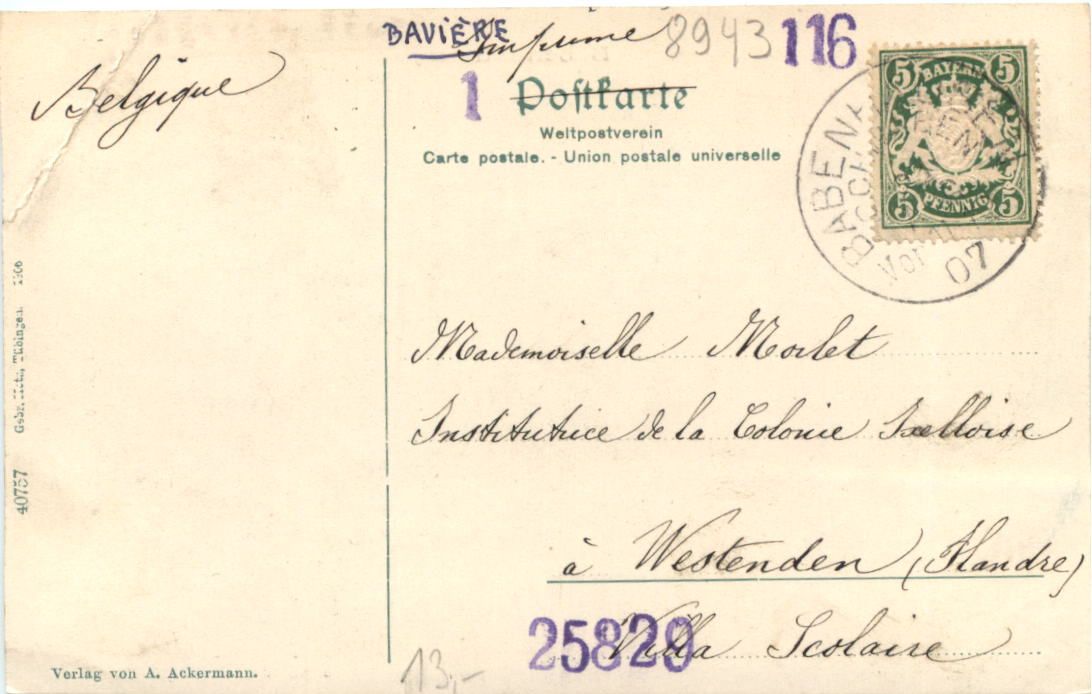 BAVIÈRE
Imprimé 8943 116
1 Postkarte
Weltpostverein
Carte postale. - Union postale universelle
Belgique
5 BAYERN 5
5 PFENNIG 5
BABENH
Vor
07
Mademoiselle Morlet
Institutrice de la Colonie Ixelloise
à Westenden (Flandre)
Villa Scolaire
25829
13,-
Verlag von A. Ackermann.
40757 Gebr. Metz, Tübingen 1906